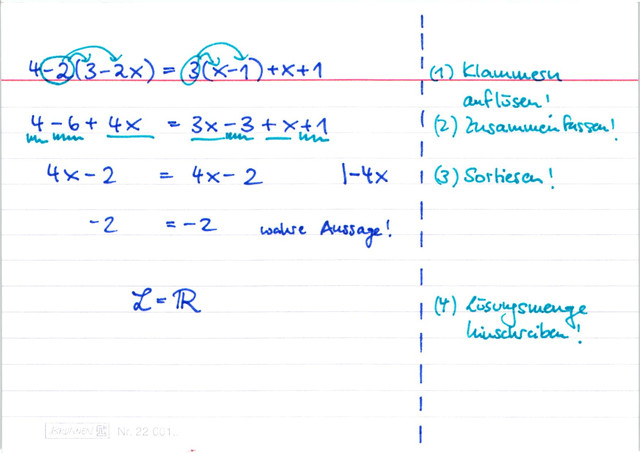 4-2(3-2x) = 3(x-1)+x+1
(1) Klammern
auflösen!
4-6+4x = 3x-3+x+1
(2) Zusammenfassen!
4x-2 = 4x-2 |-4x
(3) Sortieren!
-2 = -2 wahre Aussage!
L = ℝ
(4) Lösungsmenge
hinschreiben!
BRUNNEN Nr. 22 001